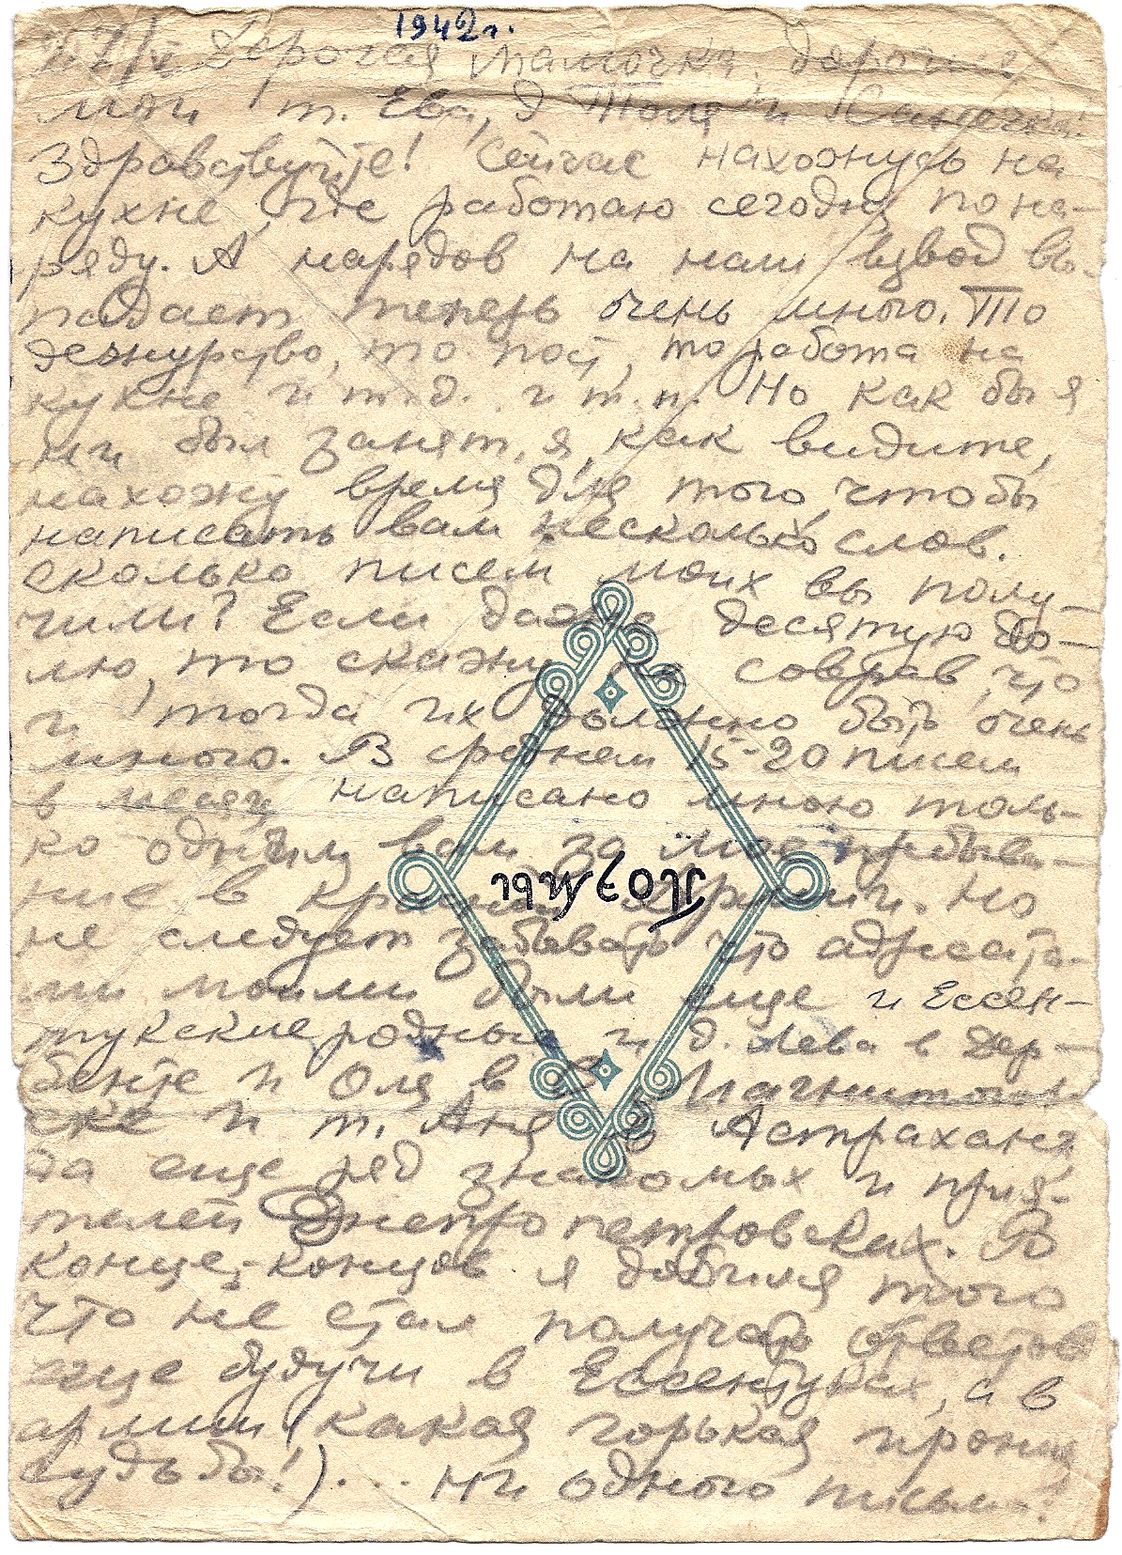 1942 г.
27/V Дорогая мамочка, дорогие
мои т. Ева, д Толя и Санечка!
Здравствуйте! Сейчас нахожусь на
кухне, где работаю сегодня по на-
ряду. А нарядов на наш взвод вы-
падает теперь очень много. То
дежурство, то пост, то работа на
кухне и т.д. и т.п. Но как бы я
ни был занят, я, как видите,
нахожу время для того, чтобы
написать вам несколько слов.
Сколько писем моих вы полу-
чили? Если даже десятую до-
лю, то скажу не соврав, что
и тогда их должно быть очень
много. В среднем 15-20 писем
в месяц написано мною толь-
ко одним вам за мое пребыва-
ние в Красной Армии. Но
поэмы
не следует забывать что адресата-
ми моими были еще и Ессен-
тукские родные и д. Лева в Дер-
бенте и Оля в Магнитогор-
ске и т. Аня в Астрахани
да еще ряд знакомых и прия-
телей Днепропетровских. В
конце-концов я добился того
что не стал получать ответов
еще будучи в Ессентуках, а в
армии (какая горькая ирония
судьбы!)... ни одного письма!